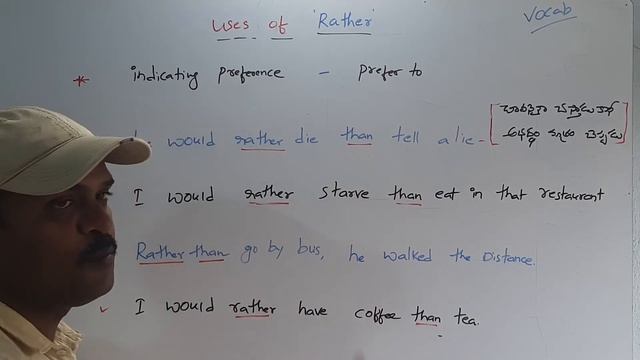 Uses of 'Rather'
Vocab
* indicating preference – prefer to
I would rather die than tell a lie –
I would rather starve than eat in that restaurant
Rather than go by bus, he walked the Distance.
✓ I would rather have coffee than tea.